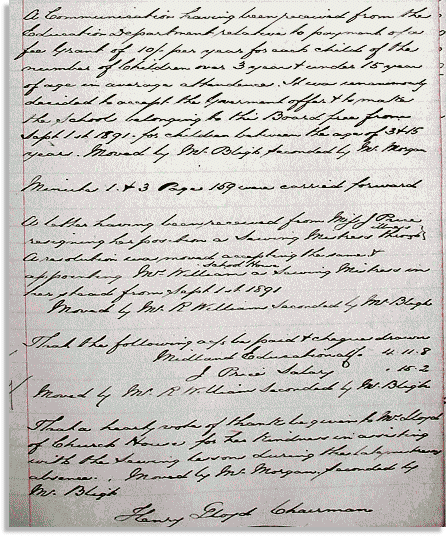 A Communication having been received from the
Education Department relative to payment of a
fee Grant of 10/- per year for each child of the
number of children over 3 years & under 15 years
of age in average attendance. It was unanimously
decided to accept the Goverment offer & to make
the School belonging to the Board free from
Sept 1st 1891. for children between the age of 3 & 15
years. Moved by Mr. Bligh seconded by Mr. Morgan
Minute 1. & 3 Page 159 were carried forward
A letter having been received from Miss J Price
resigning her position as Sewing Mistress
A resolution was moved accepting the same &
School House
appointing Mrs Williams as Sewing Mistress in
her stead from Sept 1st 1891
Moved by Mr. R Williams Seconded by Mr Bligh
That the following a/cs be paid & cheques drawn
Midland Educational Co 4. 11. 8
J. Price Salary . 15. 2
Moved by Mr. R William Seconded by Mr. Bligh
That a hearty vote of thanks be given to Mrs Lloyd
of Church House for her kindness in assisting
with the Sewing lessons during the late mistress
absence. Moved by Mr. Morgan, seconded by
Mr. Bligh
Henry Lloyd Chairman